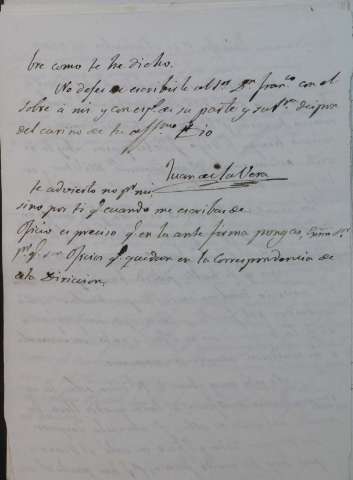 bre como te he dicho.
No dejes de escribirle al Sor Dn Franco con el
sobre á mi y con esplas su parte y
del cariño de tu affmo Tio
Juan de la Vera
te advierto no pr mi,
sino por ti qe cuando me escribas de
Oficio es preciso qe en la ante firma pongas, Sor
pr qe son Oficios qe quedan en la Correspondencia de
esta Direccion,